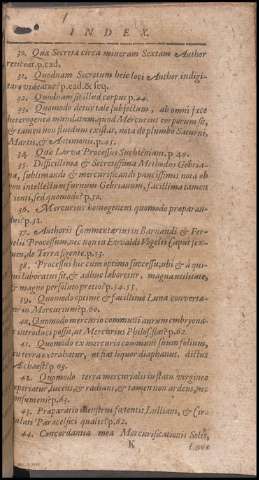 INDEX.
30. Quæ Secreta circa mineram Sextam Author
reticeat. p. ead.
31. Quodnam Secretum heic loci Author indigi-
tare videatur? p. ead. & seq.
32. Quodnam sit illud corpus p. 44.
33. Quomodo detur tale subjectum, ab omni fæce
heterogenea mundatum, quod Mercurius corporum sit,
& tamen non fluidum existat, nota de plumbo Saturni,
Martis, & Antimonii. p. 45.
34. Quæ Larva Processus Suchteniani. p. 49.
35. Difficillima & Secretissima Methodus Gebria-
na, sublimandi & mercurificandi paucissimis nota ob
non intellectum furnum Gebrianum, facillima tamen
scienti, sed quomodo? p. 50.
36. Mercurius homogeneus quomodo præparan-
dus? p. 52.
37. Authoris Commentarius in Barnaudi & Fer-
nelii Processum, nec non in Ewaldi Vogelii Caput sex-
tum, de Terra figente. p. 53.
38. Processus hic cum optimo successu, ubi & a qui-
bus laboratus sit, & adhuc laboretur, magna utilitate,
& magno persoluto pretio? p. 54. 55.
39. Quomodo optime & facillime Luna converta-
tur in Mercurium? p. 60.
40. Quomodo mercurio communi aurum embryona-
tum introduci possit, ut Mercurius Philos. fiat? p. 62.
41. Quomodo ex mercurio communi summe folium,
ut terra extrahatur, ut fiat liquor diaphanus, dictus
Alchaest? p. 65.
42. Quomodo terra mercurialis in statu virgineo
apparitur, lucens, & radians, & tamen non ardens, nec
consumens? p. 65.
43. Præparatio menstrui fœtentis Lulliani, & Cir-
culati Paracelsici qualis? p. 62.
44. Concordantia mea Mercurificationis Solis,
K Lunæ